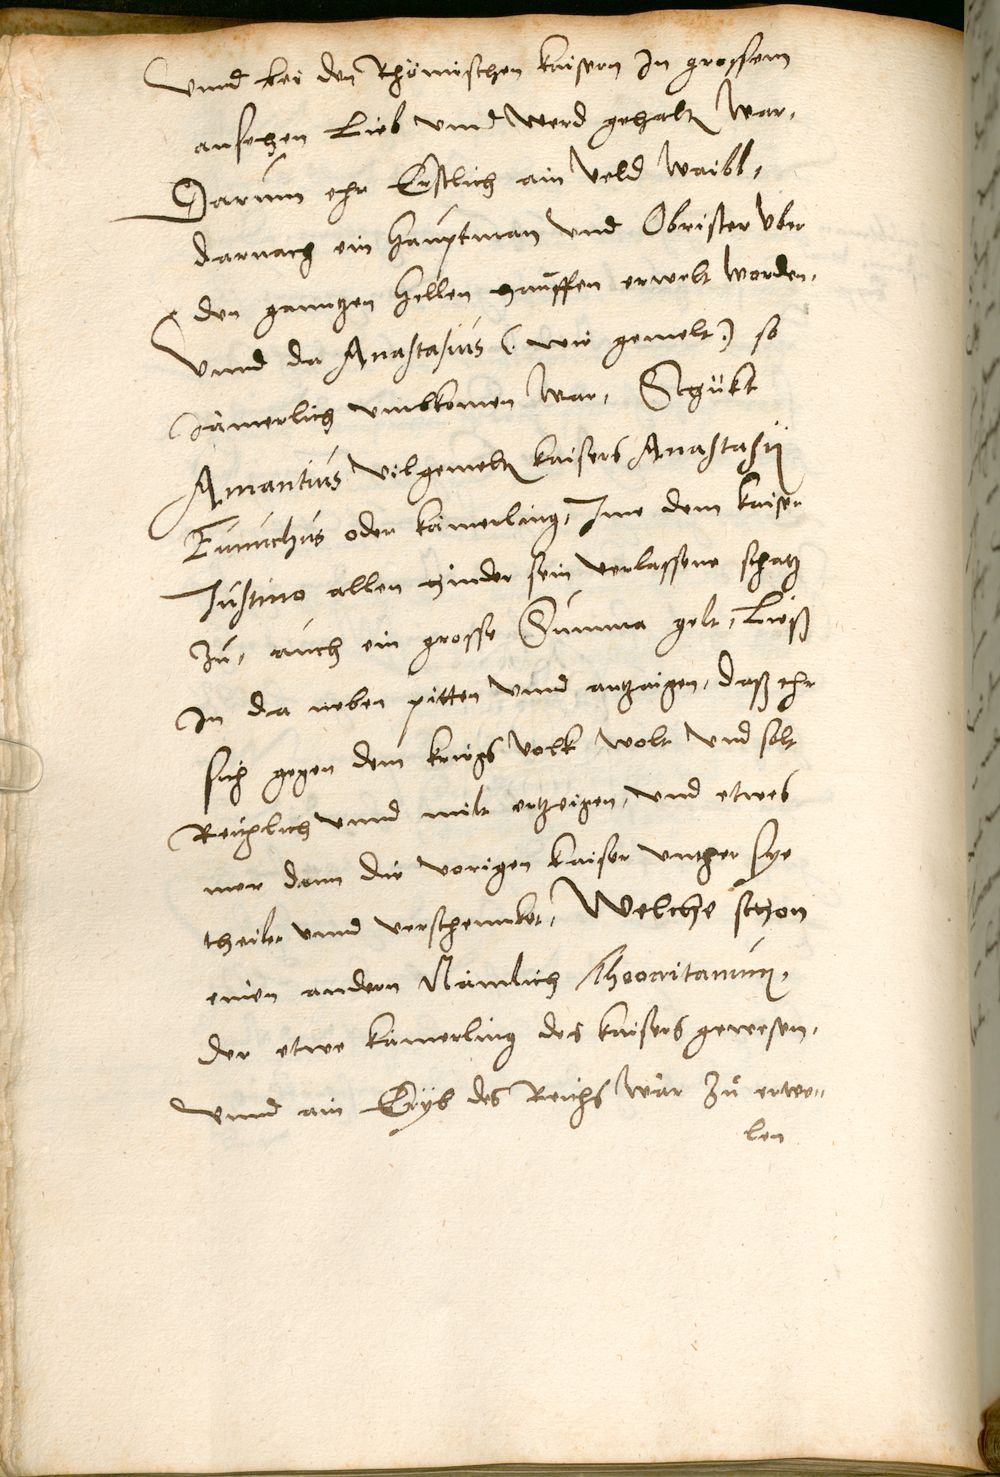 Vnnd bei den Rhömischen kaisern In grossem
ansehen Lieb vnnd Werd gehalten War,
Darum ehr Erstlich ain Veld Waibl,
darnach ein Hauptman vnd Obrister Vber
den ganntzen Hellen hauffen erwelt worden,
Vnnd da Anastasius (wie gemelt) so
Jämerlich vmbkomen War, Schükt
Amantius vilgemelten kaisers Anastasij
Eunuchus oder kämerling, Ime dem kaiser
Iustino allen hinder sein verlassene schatz
Zu, auch ein grosse Summa gelt, Ließ
In da neben pitten vnnd antzaigen, daß ehr
sich gegen dem kriegs Volk wolt vnd solt
Reichlich vnnd milt ertzeigen, vnd etwas
mer dann die vorigen kaiser vnther sye
theilet vnnd verschennket, Welche schon
einen andern Nämlich Theocritanum,
der etwe kämerling des kaisers gewesen,
Vnnd ain des Reichs war Zu erwe=
len